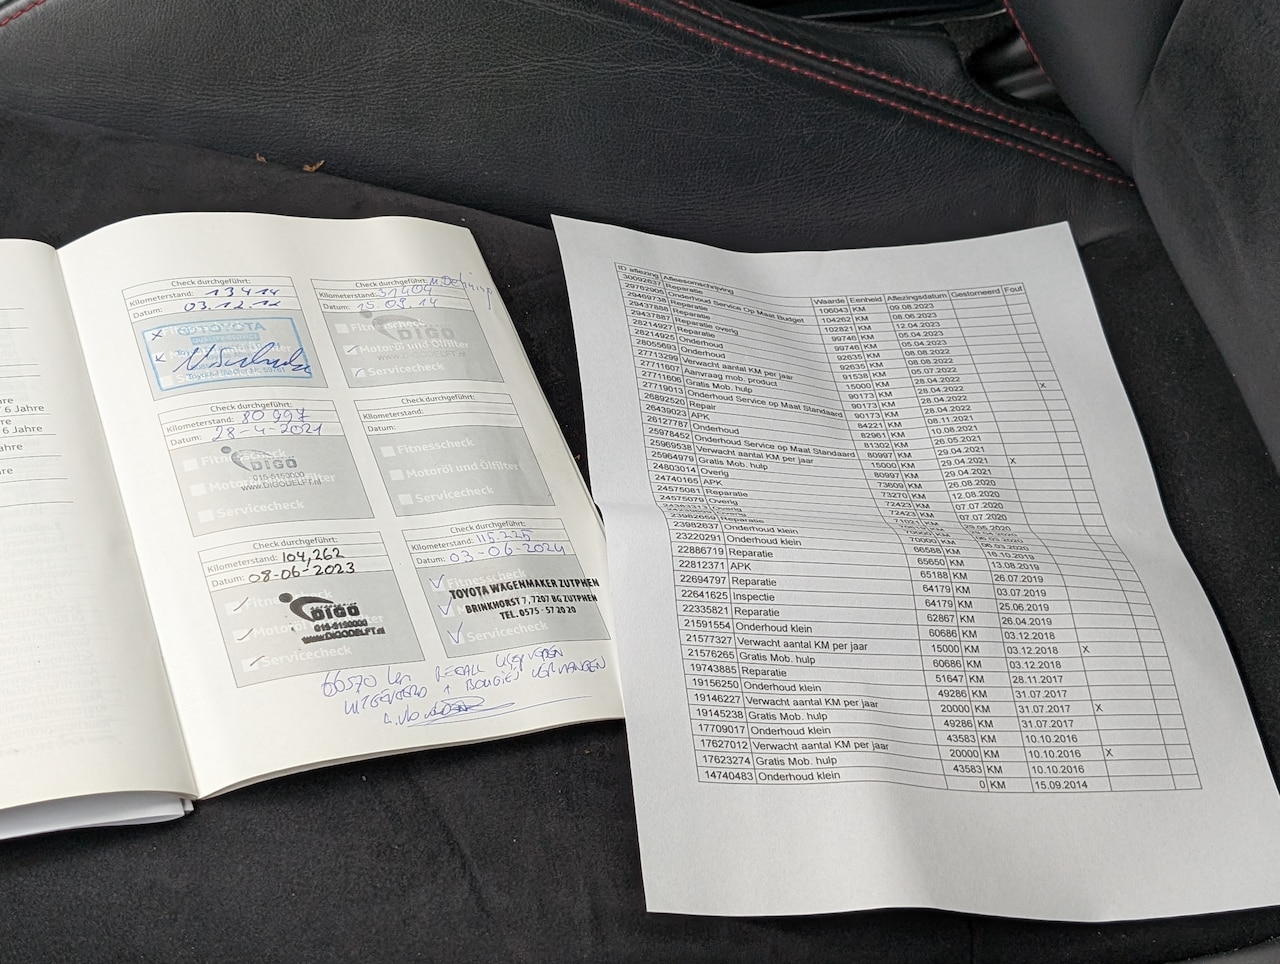 re
/ 6 Jahre
re
6 Jahre
re
re
Check durchgeführt:
Kilometerstand: 13414
Datum: 03.12.12
TOYOTA
Check durchgeführt:
Kilometerstand: 31404
Datum: 15.09.14
Fitnesscheck
DIGO
Motoröl und Ölfilter
WWW.DIGODELFT.nl
Servicecheck
Check durchgeführt:
Kilometerstand: 80997
Datum: 28-4-2021
DIGO
015-5150000
www.DIGODELFT.nl
Servicecheck
Check durchgeführt:
Kilometerstand:
Datum:
Fitnesscheck
Motoröl und Ölfilter
Servicecheck
Check durchgeführt:
Kilometerstand: 104,262
Datum: 08-06-2023
DIGO
www.DIGODELFT.nl
Servicecheck
Check durchgeführt:
Kilometerstand: 115.225
Datum: 03-06-2024
Fitnesscheck
TOYOTA WAGENMAKER ZUTPHEN
BRINKHORST 7, 7207 BG ZUTPHEN
TEL. 0575 - 57 20 20
Servicecheck
66570 km RECALL
UITGEVOERD + BOUGIES VERVANGEN
ID aflezing Afleesomschrijving Waarde Eenheid Aflezingsdatum Gestorneerd Fout
30092637 Reparatie 106043 KM 09.08.2023
Onderhoud Service Op Maat Budget 104262 KM 08.06.2023
29469738 Reparatie 102821 KM 12.04.2023
29437888 Reparatie overig 99746 KM 05.04.2023
29437887 Reparatie 99746 KM 05.04.2023
28214927 Onderhoud 92635 KM 08.08.2022
28214925 Onderhoud 92635 KM 08.08.2022
28055693 Verwacht aantal KM per jaar 91538 KM 05.07.2022
27713299 Aanvraag mob. product 15000 KM 28.04.2022 X
27711607 Gratis Mob. hulp 90173 KM 28.04.2022
27711606 Onderhoud Service op Maat Standaard 90173 KM 28.04.2022
27719013 Repair 90173 KM 28.04.2022
26892520 APK 84221 KM 08.11.2021
26439023 Onderhoud 82961 KM 10.08.2021
26127787 Onderhoud Service op Maat Standaard 81302 KM 26.05.2021
25978452 Verwacht aantal KM per jaar 80997 KM 29.04.2021
25969538 Gratis Mob. hulp 15000 KM 29.04.2021 X
25964979 Overig 80997 KM 29.04.2021
24803014 APK 73609 KM 26.08.2020
24740165 Reparatie 73270 KM 12.08.2020
24575081 Overig 72423 KM 07.07.2020
24575079 Overig 72423 KM 07.07.2020
Reparatie 71021 KM
23982637 Onderhoud klein 70000 KM 06.03.2020
23220291 Onderhoud klein 66588 KM 16.10.2019
22886719 Reparatie 65650 KM 13.08.2019
22812371 APK 65188 KM 26.07.2019
22694797 Reparatie 64179 KM 03.07.2019
22641625 Inspectie 64179 KM 25.06.2019
22335821 Reparatie 62867 KM 26.04.2019
21591554 Onderhoud klein 60686 KM 03.12.2018
21577327 Verwacht aantal KM per jaar 15000 KM 03.12.2018 X
21576265 Gratis Mob. hulp 60686 KM 03.12.2018
19743885 Reparatie 51647 KM 28.11.2017
19156250 Onderhoud klein 49286 KM 31.07.2017
19146227 Verwacht aantal KM per jaar 20000 KM 31.07.2017 X
19145238 Gratis Mob. hulp 49286 KM 31.07.2017
17709017 Onderhoud klein 43583 KM 10.10.2016
17627012 Verwacht aantal KM per jaar 20000 KM 10.10.2016 X
17623274 Gratis Mob. hulp 43583 KM 10.10.2016
14740483 Onderhoud klein 0 KM 15.09.2014